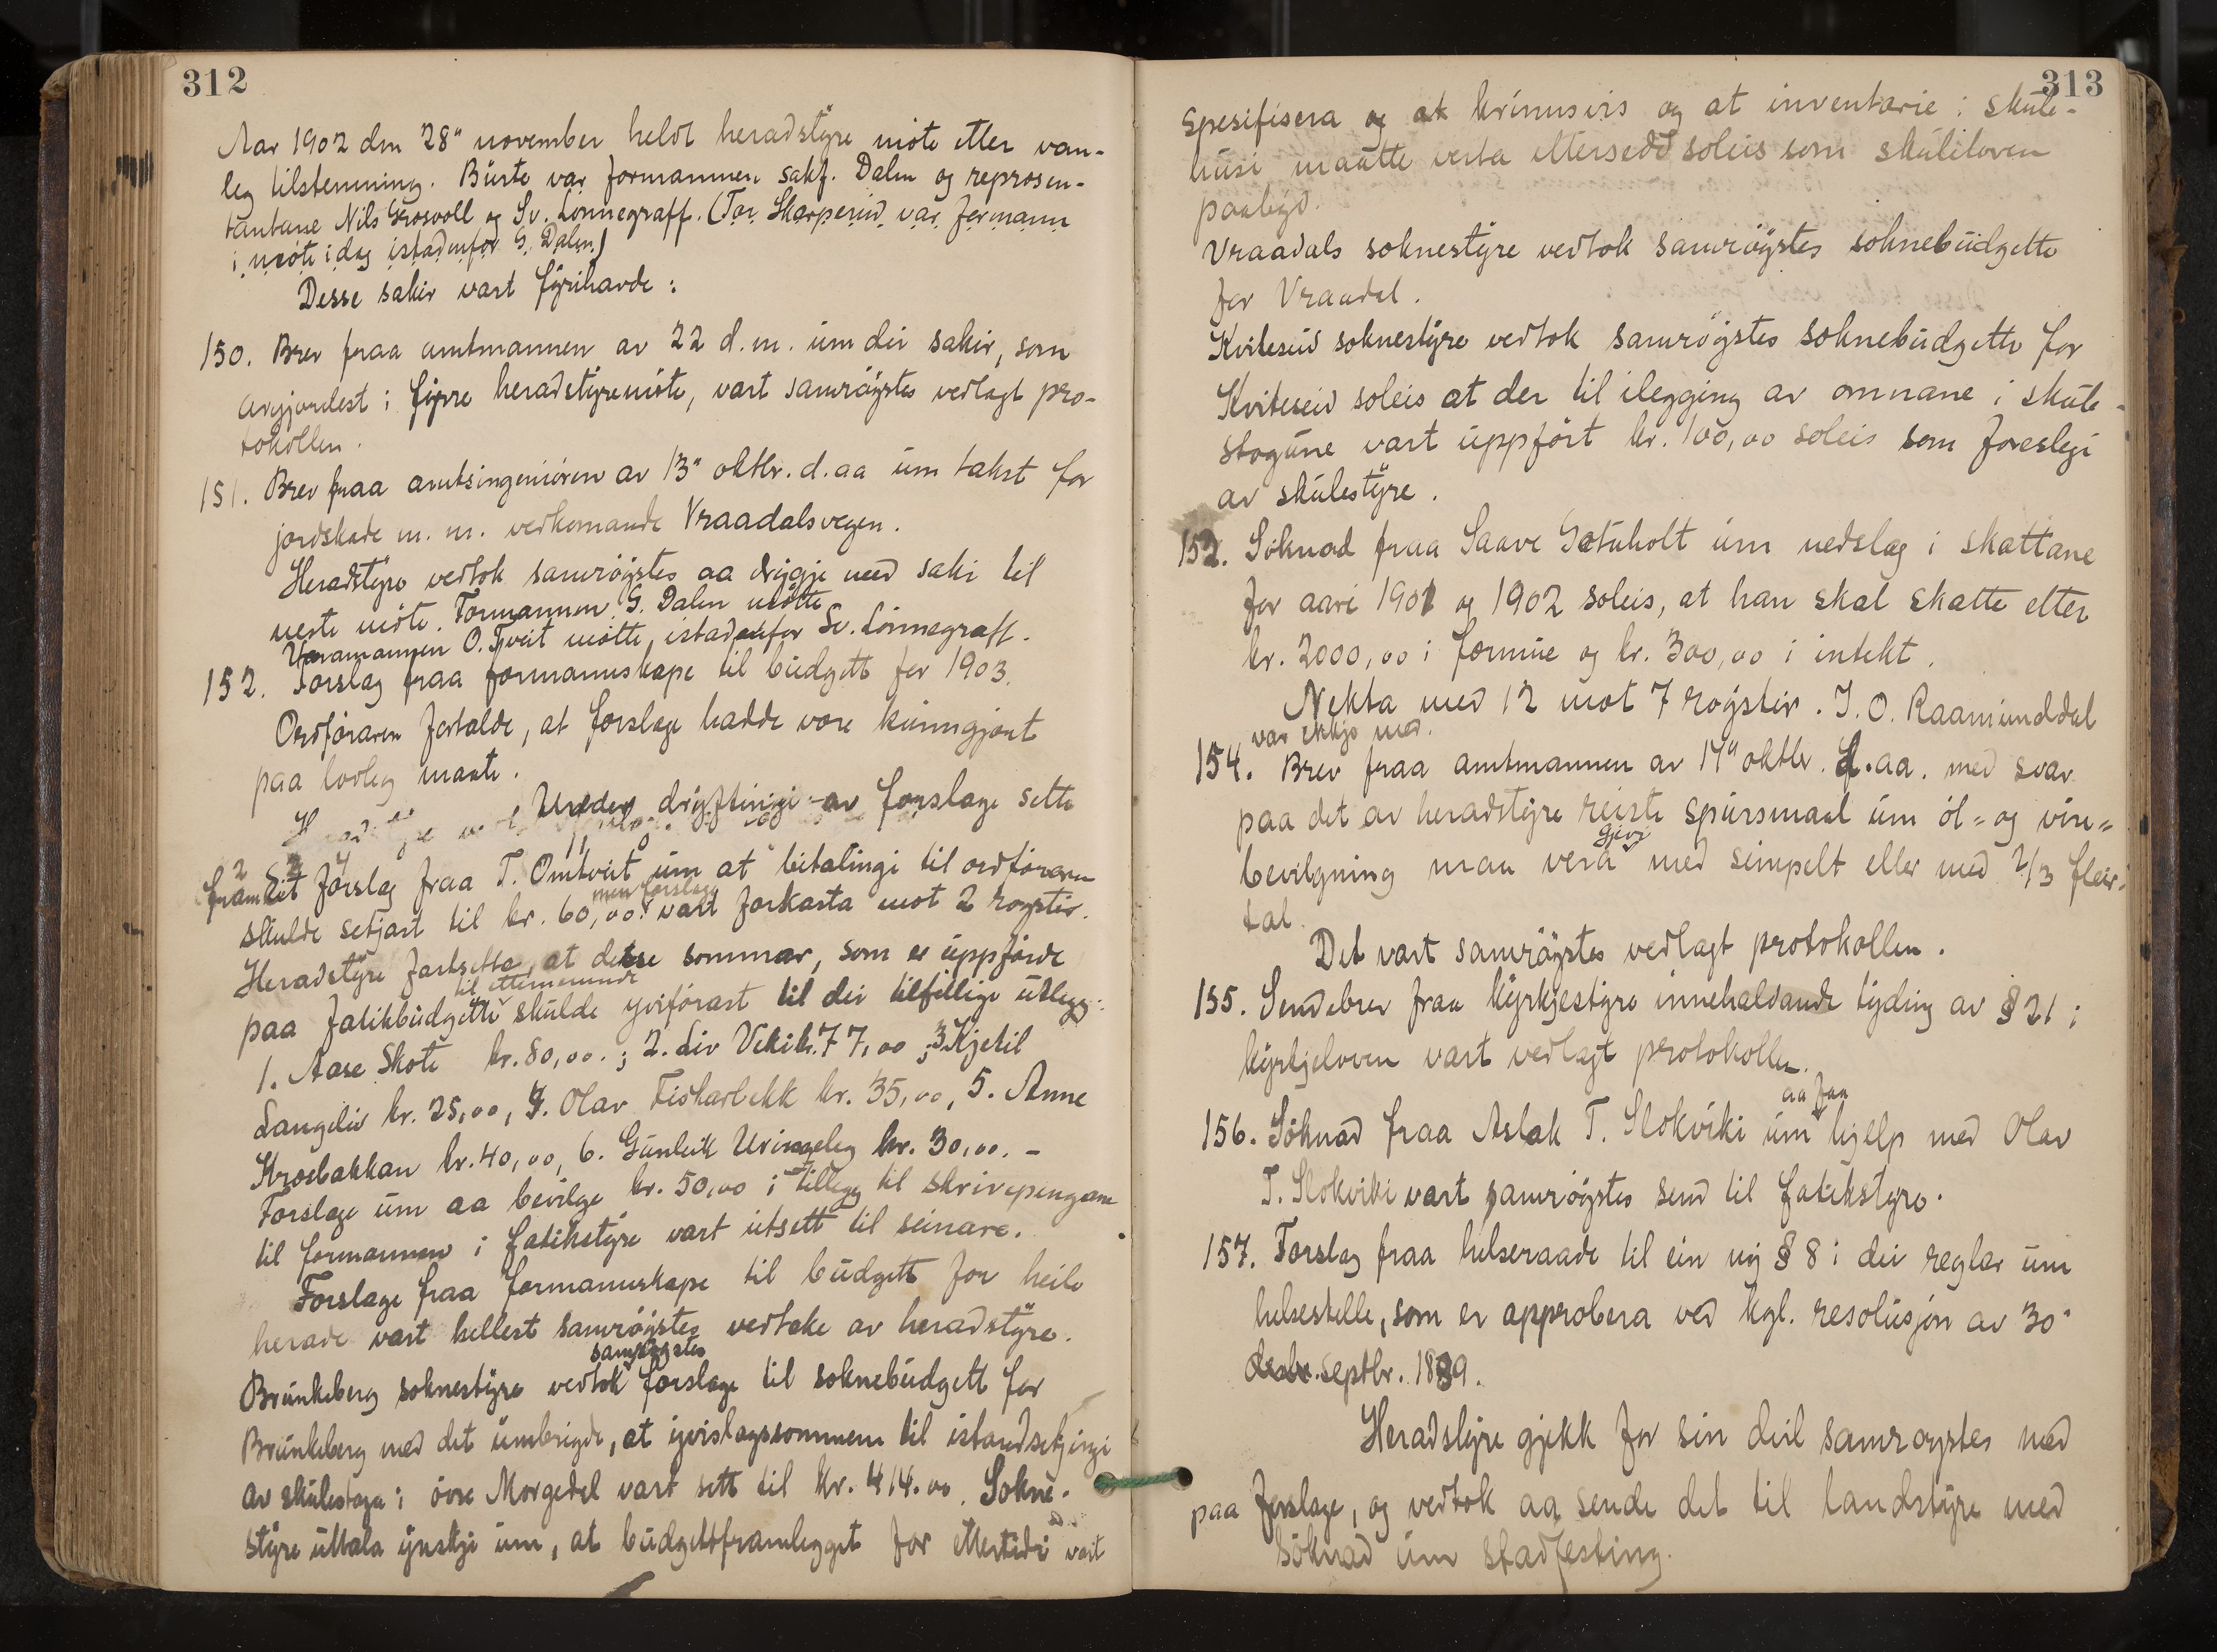 312
Aar 1902 den 28" november heldt heradstyre möte etter van-
leg tilstemning. Burte var formannen sakf. Dalen og represen-
tantane Nils Grosvoll og Sv. Lönnegraff. (Tor Skarperud var formann
i möte i dag istadenfor G. Dalen)
Desse sakir vart fyrihavde:
150. Brev fraa amtmannen av 22 d.m. um dei sakir, som
avgjordest i fyrre heradstyremöte, vart samröystes vedlagt pro-
tokollen.
151. Brev fraa amtsingeniören av 13" oktbr. d. aa um takst for
jordskade m. m. vedkomande Vraadalsvegen.
Heradstyre vedtok samröystes aa drygje med saki til
neste möte. Formannen G. Dalen mötte
Varamannen O. Tveit mötte, istadenfor Sv. Lönnegraff.
152. Forslag fraa formannskape til budgett for 1903.
Ordföraren fortalde, at forslage hadde vore kunngjort
paa lovleg maate.
Under dryftingi av forslage sette
fram eit forslag fraa T. Omtveit um at betalingi til ordföraren
skulde setjast til kr. 60,00. men forslage vart forkasta mot 2 röystir.
Heradstyre fortsette, at desse sommar, som er uppförde
paa fatikbudgette til etternemnde skulde yviförast til dei tilfellige utlegg:
1. Aase Skote kr. 80,00.; 2. Liv Veki kr. 77,00; 3. Kjetil
Langelid kr. 25,00, 4. Olav Fiskarbekk kr. 35,00, 5. Anne
Krosbakkan kr. 40,00, 6. Gunleik kr. 30,00. -
Forslage um aa bevilge kr. 50,00 i tillegg til skrivepengane
til formannen i fatikstyre vart utsett til seinare.
Forslage fraa formannskape til budgett for heile
herade vart hellest samröystes vedteke av heradstyre.
Brunkeberg soknestyre vedtok samröystes forslage til soknebudgett for
Brunkeberg med det umbrigde, at yvislagssommen til istandsetjingi
av skulestoga i övre Morgedal vart sett til kr. 414.00. Sokne-
styre uttala ynskje um, at budgettframlegget for ettertidi vart
313
spesifisera og at krinusvis og at inventarie i skule-
husi maatte verta ettersedd soleis som skuleloven
paabyd.
Vraadals soknestyre vedtok samröystes soknebudgette
for Vraadal.
Kviteseid soknestyre vedtok samröystes soknebudgette for
Kviteseid soleis at der til ilegging av omnane i skule-
stogune vart uppfört kr. 100,00 soleis som foreslegi
av skulestyre.
152. Söknad fraa Saave Gotuholt um nedslag i skattane
for aari 1901 og 1902 soleis, at han skal skatte etter
kr. 2000,00 i formue og kr. 300,00 i intekt.
Nekta med 12 mot 7 röystir. J. O. Raamunddal
var ikkje med.
154. Brev fraa amtmannen av 14" oktbr. d. aa. med svar
paa det av heradstyre reiste spursmaal um öl- og vin-
bevilgning maa vera givi med simpelt eller med 2/3 fleir-
tal.
Det vart samröystes vedlagt protokollen.
155. Sendebrev fraa kyrkjestyre innehaldande tyding av § 21 i
kyrkjeloven vart vedlagt protokollen.
156. Söknad fraa Aslak T. Slokviki um aa faa hjelp med Olav
T. Slokviki vart samröystes send til fatikstyre.
157. Forslag fraa helseraade til ein ny § 8 i dei reglar um
helsestelle, som er approbera ved kgl. resolusjon av 30"
septbr. 1889.
Heradstyre gjekk for sin deil samröystes med
paa forslage, og vedtok aa sende det til landstyre med
söknad um stadfesting.